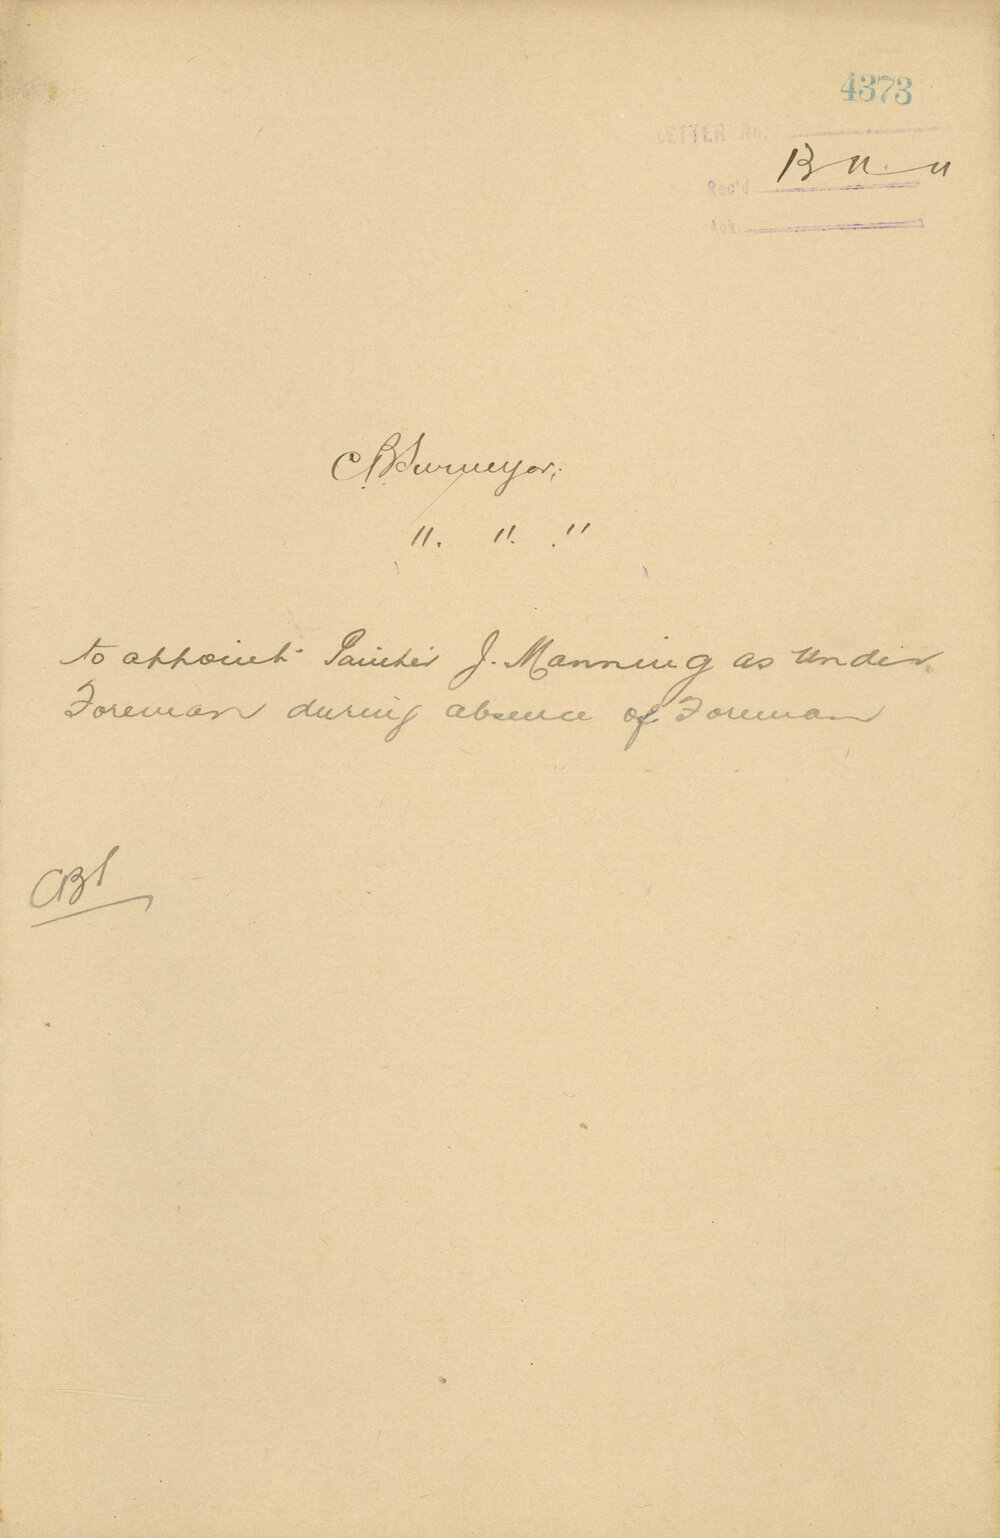 4373
LETTER No.
Rec'd 13 11 11
Ack.
C. B. Surveyor;
". ". ."
to appoint Painter J. Manning as Under
Foreman during absence of Foreman
CBS